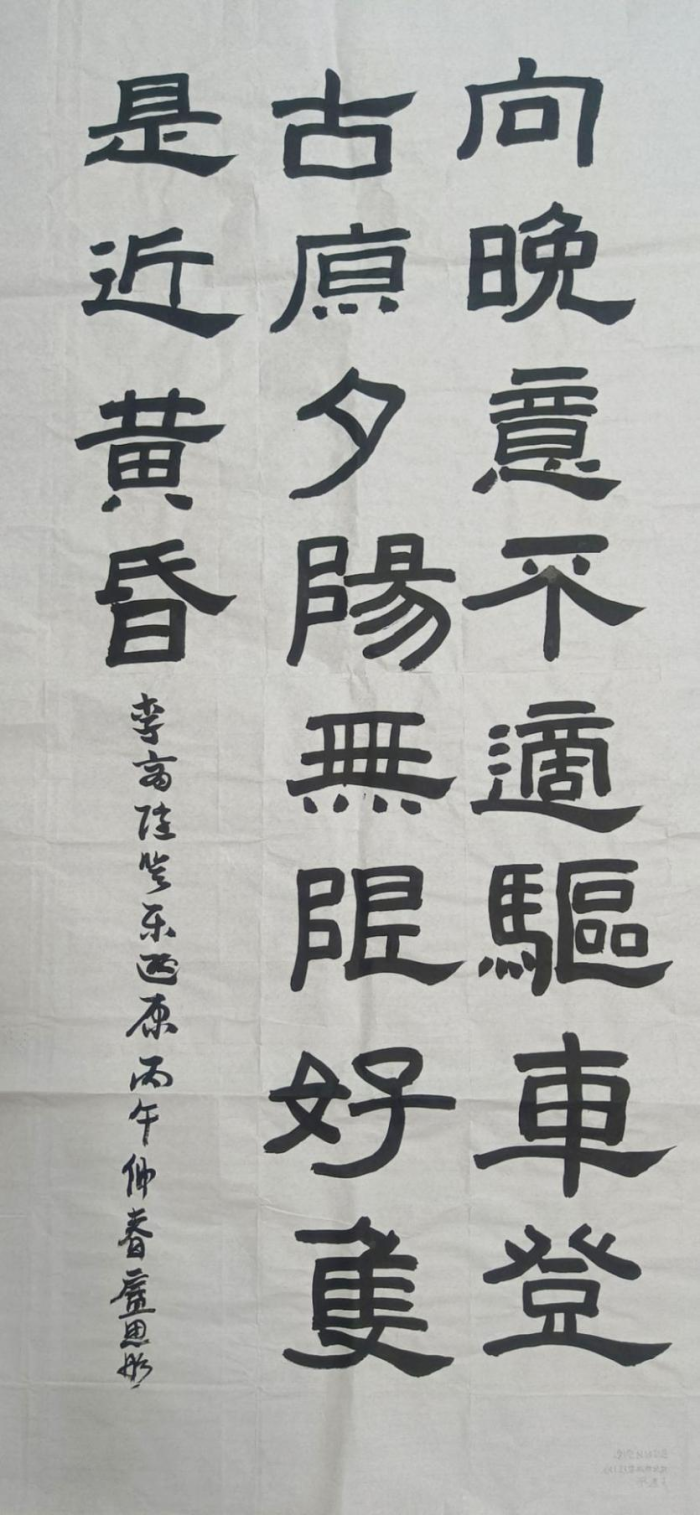 向晚意不適驅車登
古原夕陽無限好隻
是近黄昏
李商隐登乐游原丙午仲春盧思彤